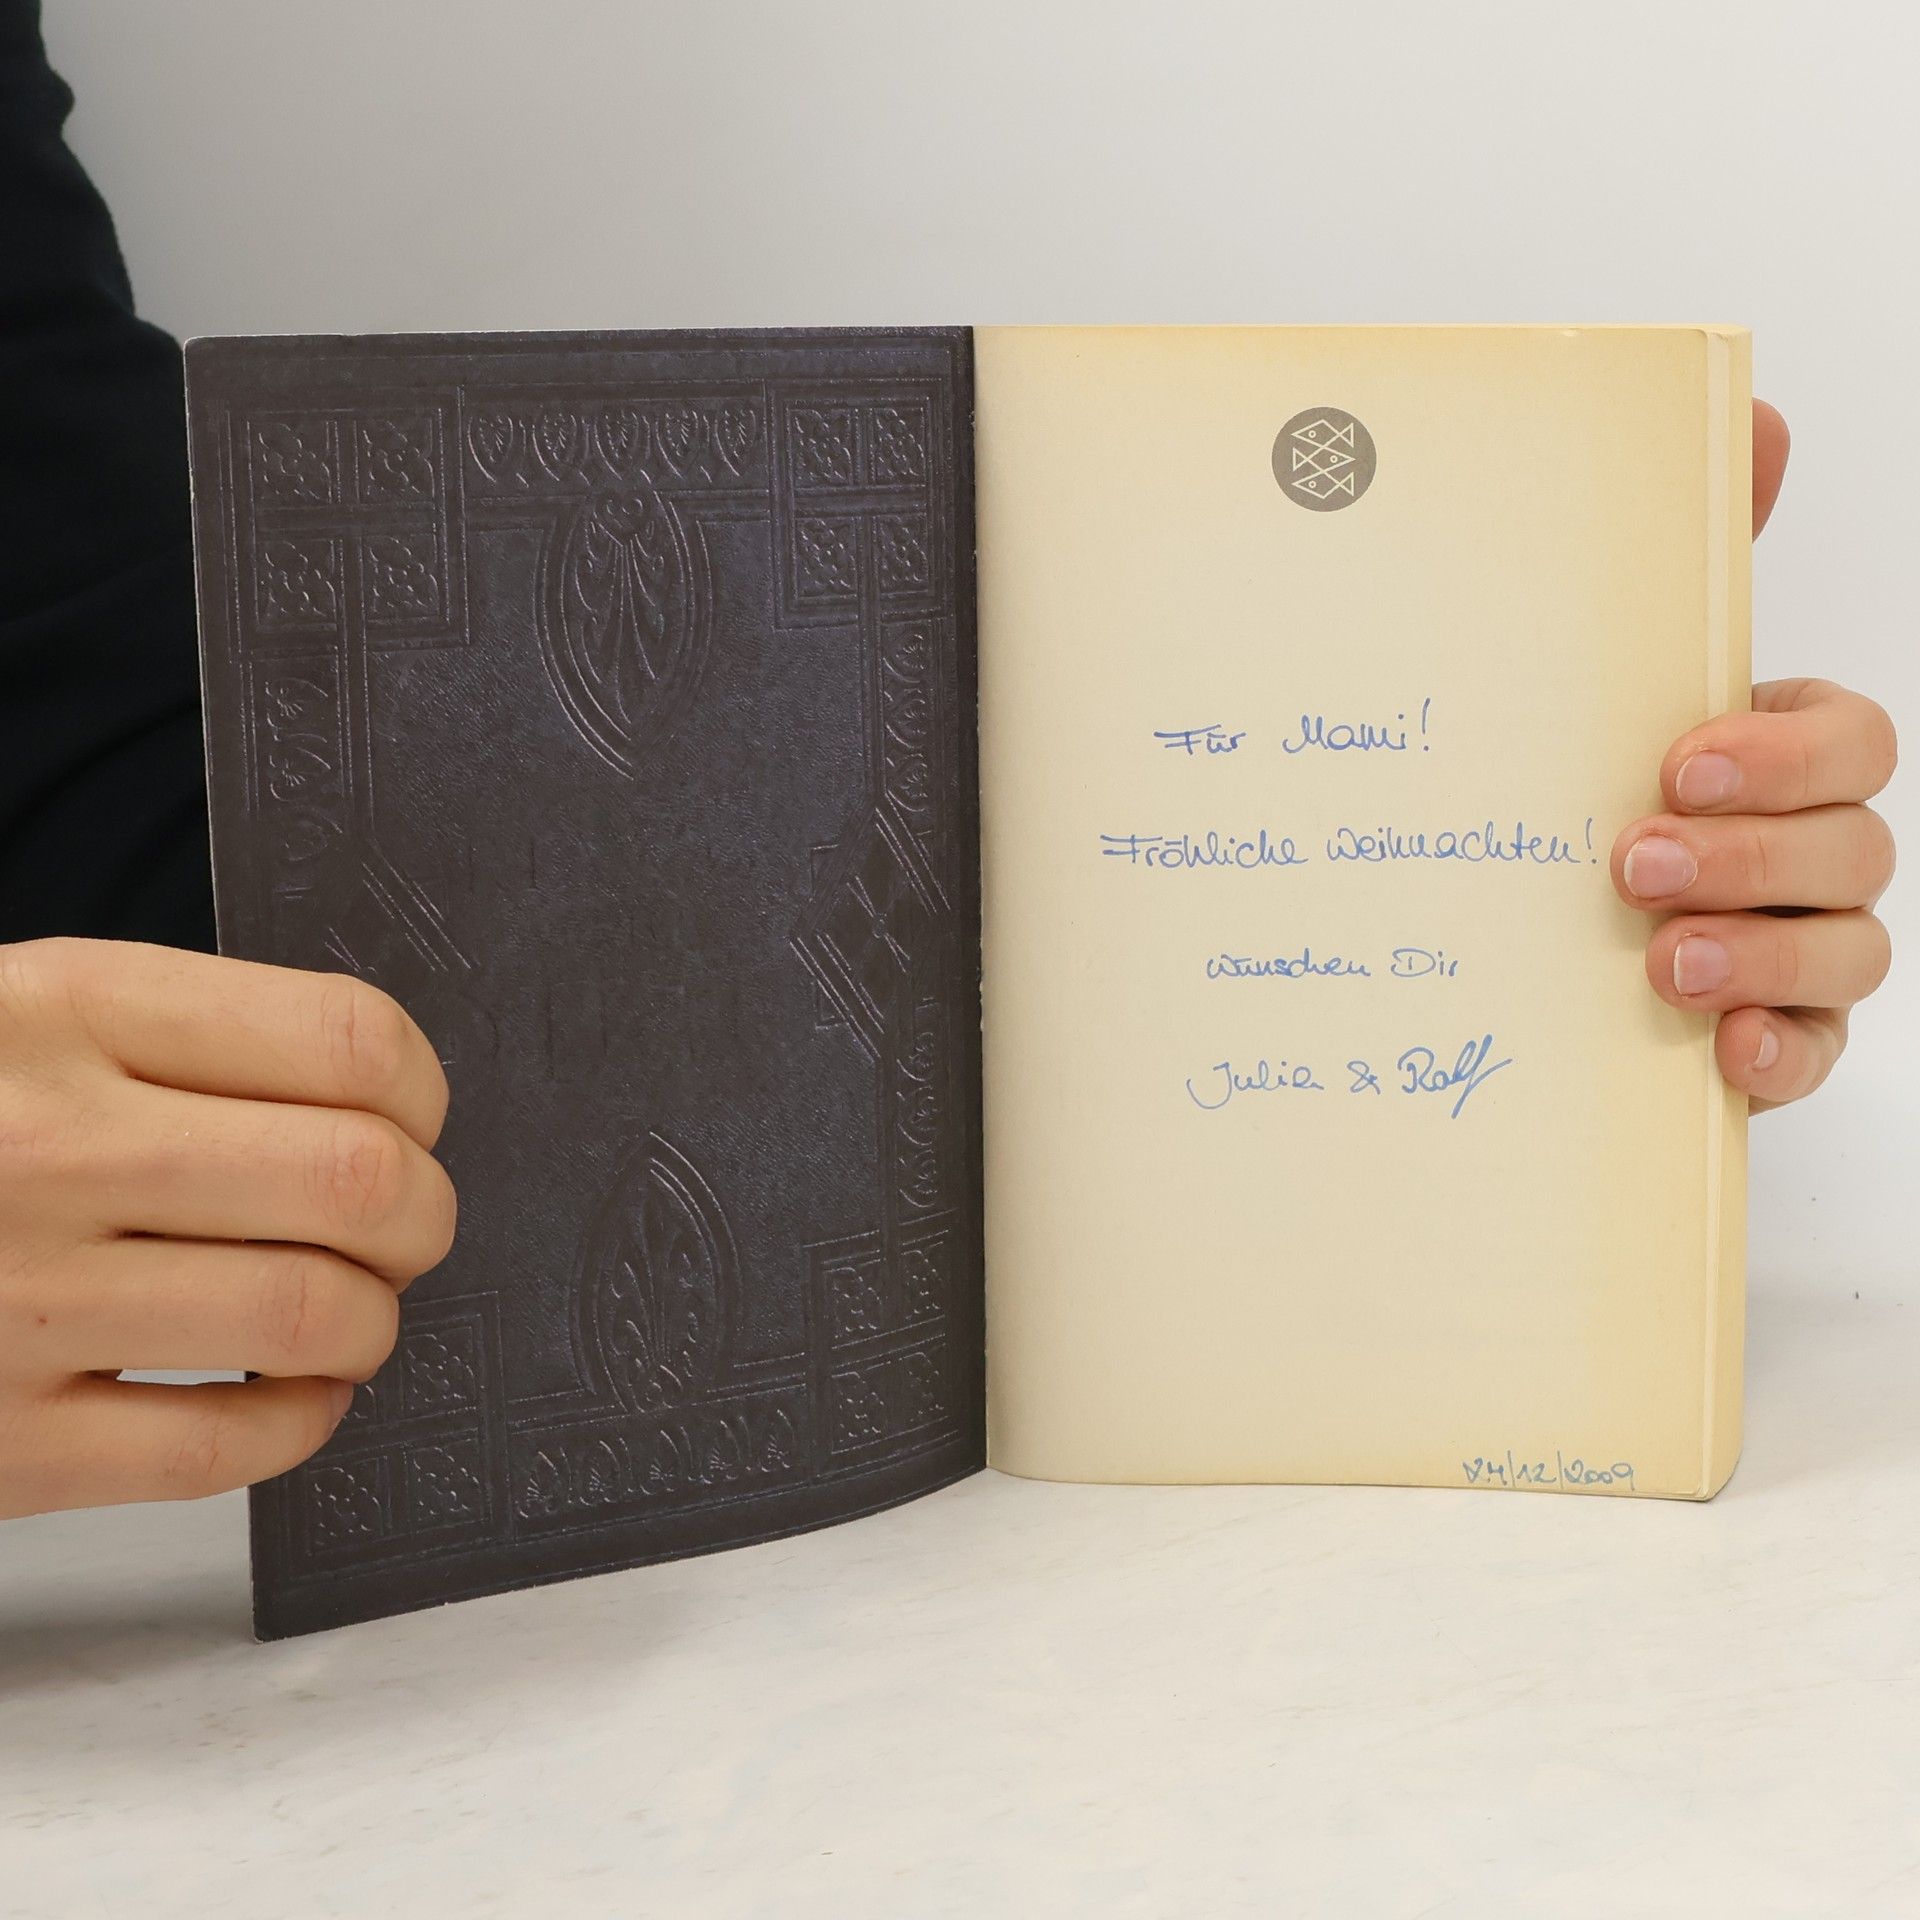 Für Mami!
Fröhliche Weihnachten!
wünschen Dir
Julia & Ralf
24/12/2009